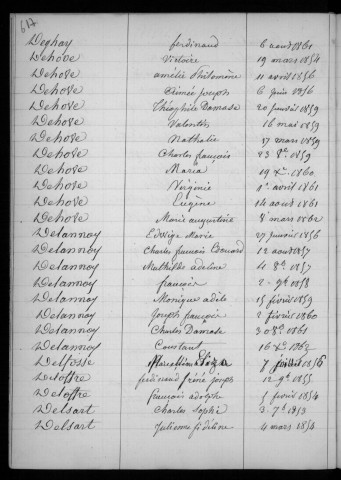 617
Deghay ferdinand 6 aout 1861
Dehove Victoire 19 mars 1854
Dehove amélie Philomène 11 avril 1856
Dehove Aimée joseph 6 juin 1856
Dehove Théophile Damase 20 janvier 1859
Dehove Valentin 16 mai 1859
Dehove Nathalie 17 mars 1859
Dehove Charles françois 23 8bre 1859
Dehove Maria 19 Xbre 1860
Dehove Virginie 1er avril 1861
Dehove Eugène 14 aout 1861
Dehove Marie augustine 8 mars 1862
Delannoy Edwige Marie 27 janvier 1856
Delannoy Charles francois 12 aout 1857
Delannoy Mathilde adeline 4 8bre 1857
Delannoy françois 2 9bre 1858
Delannoy Monique adèle 15 fevrier 1859
Delannoy Joseph françois 2 fevrier 1860
Delannoy Charles Damase 3 8bre 1861
Delannoy Constant 16 Xbre 1862
Delfosse 7 1856
Deloffre ferdinand joseph 12 9bre 1855
Deloffre françois adolphe 5 fevrier 1854
Delsart Charles Sophie 3 7bre 1853
Delsart Julienne fidéline 4 mars 1854